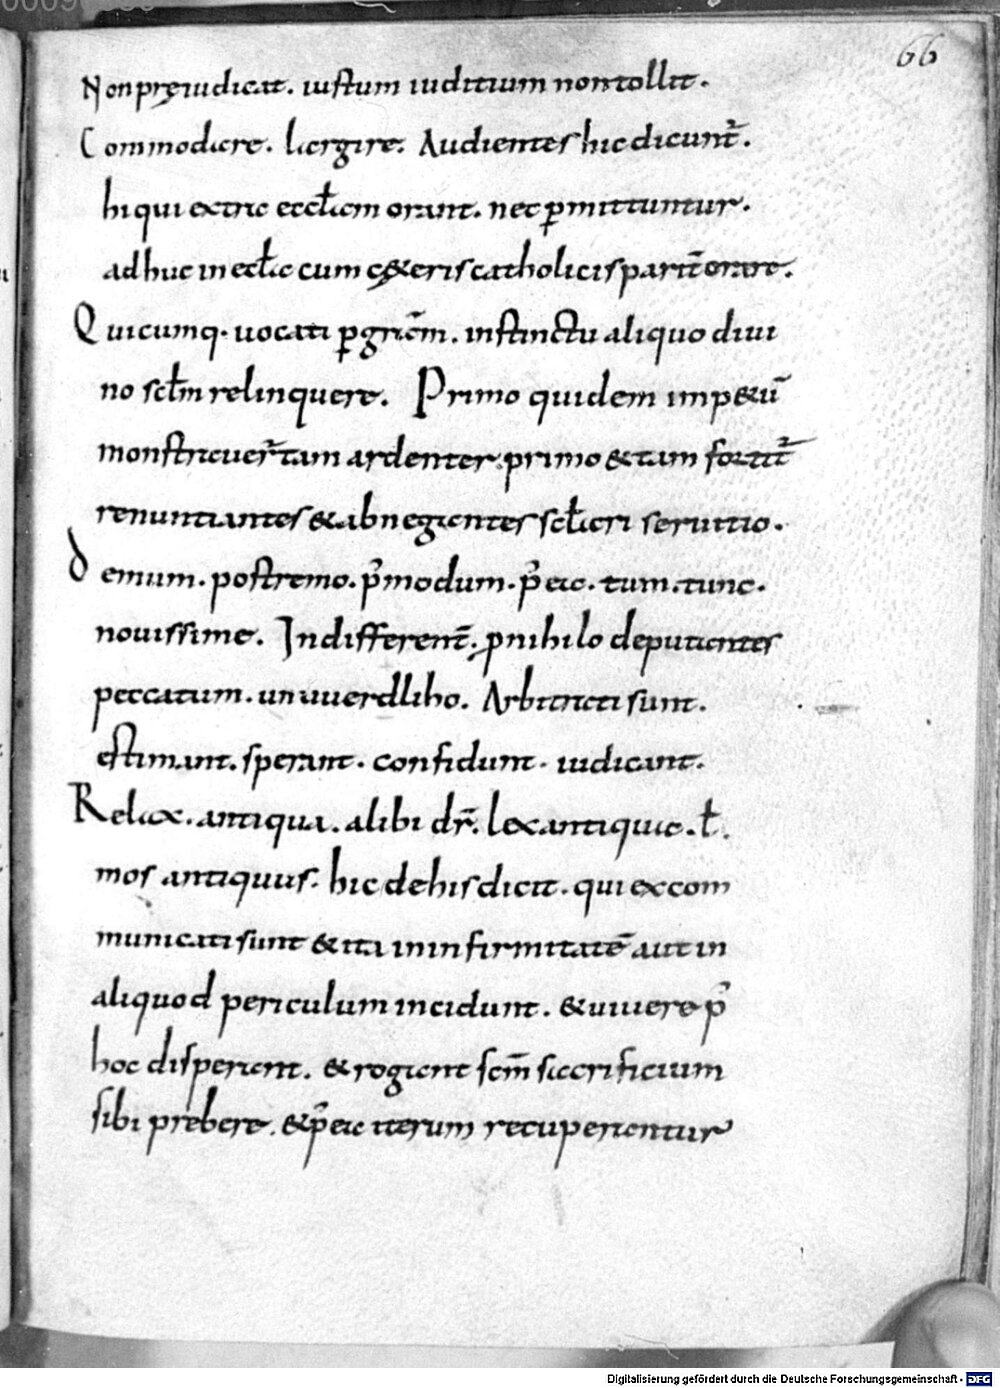 66
Non pręiudicat. iustum iuditium non tollit.
Commodare. largire. Audientes hic dicunt̄.
hi qui extra eccl̄am orant. nec ꝑmittuntur.
adhuc in eccl̄a cum cęteris catholicis parit̄ orare.
Quicumq· uocati ꝑ grām. instinctu aliquo diui
no scl̄m relinquere. Primo quidem impetū
monstrauer̄ tam ardenter. primo & tam fortit̄
renuntiantes & abnegantes scl̄ari seruitio.
demum. postremo. p̄modum. p̄ea. tum. tunc.
nouissime. Indifferent̄. ꝓ nihilo deputantes
peccatum. unuuerdliho. Arbitrati sunt.
estimant. sperant. confidunt. iudicant.
Relax. antiqua. alibi dr̄. lex antiqua. ł.
mos antiquus. hic de his dicit. qui excom
municati sunt & ita in infirmitatē aut in
aliquod periculum incidunt. & uiuere p̄
hoc disperant. & rogant scm̄ sacrificium
sibi prebere. & p̄ea iterum recuperantur
Digitalisierung gefördert durch die Deutsche Forschungsgemeinschaft - DFG